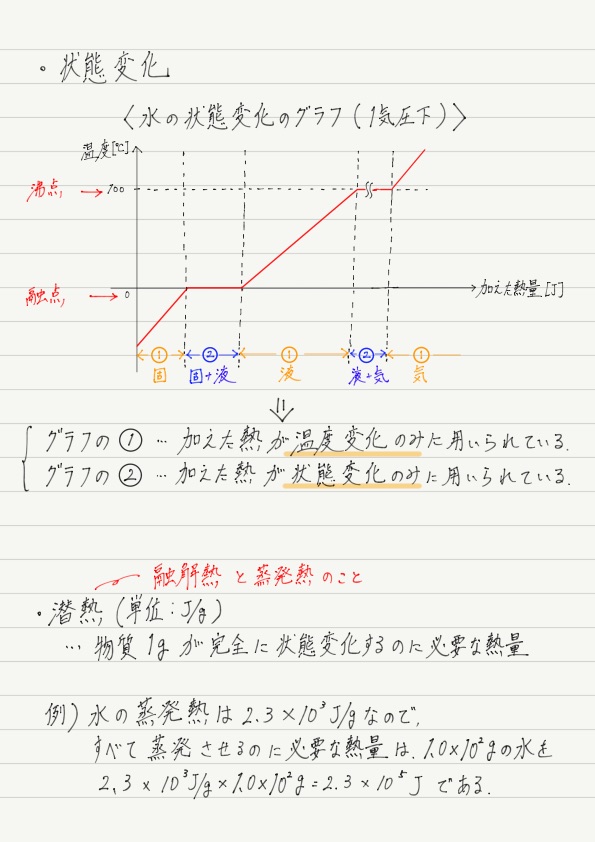 ・状態変化
〈水の状態変化のグラフ(1気圧下)〉
温度[℃]
沸点 → 100
融点 → 0
加えた熱量[J]
① ② ① ② ①
固 固+液 液 液+気 気
⇓
グラフの① … 加えた熱が温度変化のみに用いられている.
グラフの② … 加えた熱が状態変化のみに用いられている.
融解熱と蒸発熱のこと
・潜熱(単位:J/g)
… 物質1gが完全に状態変化するのに必要な熱量
例) 水の蒸発熱は2.3×10³J/gなので,
すべて蒸発させるのに必要な熱量は、1.0×10²gの水を
2.3×10³J/g×1.0×10²g=2.3×10⁵J である.